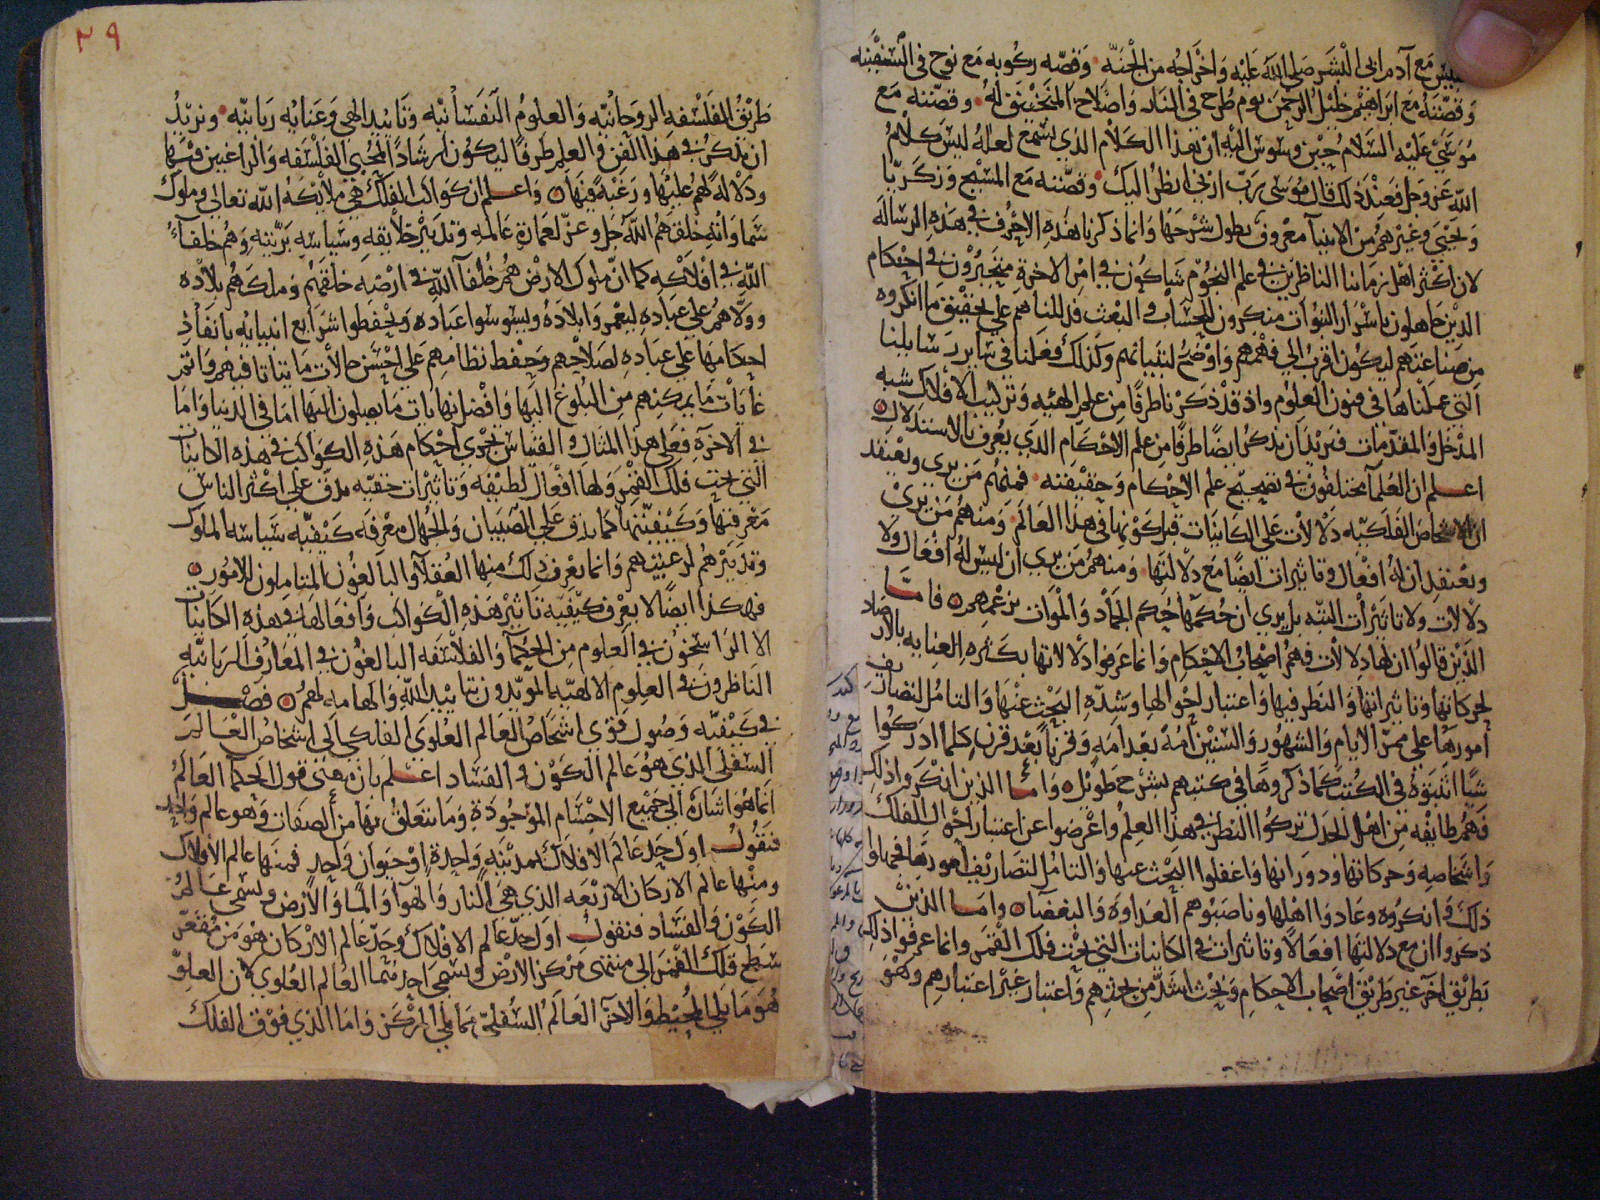 ابليس مع آدم ابى البشر صلى الله عليه واخراجه من الجنة وقصه ركوبه مع نوح في السفينه
وقصته مع ابراهيم خليل الرحمن يوم طرح في النار واصلاح المنجنيق له وقصته مع
موسى عليه السلام حين وسوس اليه ان هذا الكلام الذي يسمع لعله ليس كلام
الله عز وجل فعند ذلك قال موسى رب ارنى انظر اليك وقصته مع المسيح وزكريا
ويحيى وغيرهم من الانبيا معروف يطول شرحها وانما ذكرنا هذه الاحرف في هذه الرساله
لان اكثر اهل زماننا الناظرين في علم النجوم شاكون في امر الاخرة متحيرون في احكام
الدين جاهلون باسرار النبوات منكرون للحساب والبعث فدللناهم على تحقيق ما انكروه
من صناعتهم ليكون اقرب الى فهمهم واوضح لتبيانهم وكذلك فعلنا في ساير رسايلنا
التي عملناها في فنون العلوم واذ قد ذكرنا طرفا من علم الهيئه وتركيب الافلاك شبه
المدخل والمقدمات فنريد ان نذكر ايضا طرفا من علم الاحكام الذي يعرف بالاستدلال
اعلم ان العلمآ مختلفون في تصحيح علم الاحكام وحقيقته فمنهم من يرى ويعتقد
ان الاشخاص الفلكيه دلالات على الكاينات قبل كونها في هذا العالم ومنهم من يرى
ويعتقد ان له افعال وتاثيرات ايضا مع دلالتها ومنهم من يرى ان ليس له افعال ولا
دلالات ولا تاثيرات البته بل يرى ان حكمها حكم الجماد والموات بزعمهم فاما
الذين قالوا ان لها دلالات فهم اصحاب الاحكام وانما عرفوا دلالاتها بكثره العنايه بالارصاد
لحركاتها وتاثيراتها والنظر فيها واعتبار احوالها وشدة البحث عنها والتامل لتصاريف
امورها على ممر الايام والشهور والسنين امة بعد امه وقرنا بعد قرن كلما ادركوا
شيا اثبتوه في الكتب كما ذكروها في كتبهم بشرح طويل واما الذين انكروا ذلك
فهم طايفه من اهل الجدل تركوا النظر في هذا العلم واعرضوا عن اعتبار احوال الفلك
واشخاصه وحركاتها ودورانها واغفلوا البحث عنها والتامل لتصاريف امورها فجهلوا
ذلك وانكروه وعادوا اهلها وناصبوهم العداوه والبغضا واما الذين
ذكروا ان مع دلالتها افعالا وتاثيرات في الكاينات التي تحت فلك القمر وانما عرفوا ذلك
بطريق آخر غير طريق اصحاب الاحكام وبحث اشد من بحثهم واعتبار غير اعتبارهم وهو
٢٩
طريق الفلسفه الروحانيه والعلوم النفسانيه وتاييد الهى وعنايه ربانيه ونريد
ان نذكر في هذا الفن في العلم طرفا ليكون ارشادا لمحبي الفلسفه والراغبين فيها
ودلالة لهم عليها ورغبة فيها واعلم ان كواكب الفلك هي ملايكه الله تعالى وملوك
سماواته خلقهم الله جل وعز لعمارة عالمه وتدبير خلايقه وسياسه بريته وهم خلفآء
الله في افلاكه كما ان ملوك الارض هم خلفآ الله في ارضه خلقهم وملكهم بلاده
وولاهم على عباده ليعمروا بلاده ويسوسوا عباده ويحفظوا شرايع انبيايه بانفاذ
احكامها على عباده لصلاحهم وحفظ نظامهم على احسن حالات ما يتاتا فيهم واتم
غايات ما يمكنهم من البلوغ اليها وافضل نهايات ما يصلون اليها اما في الدنيا واما
في الاخرة فعلى هذا المثال والقياس يجرى احكام هذه الكواكب في هذه الكاينات
التي تحت فلك القمر ولها افعال لطيفه وتاثيرات خفيه يدق على اكثر الناس
معرفتها وكيفيتها كما يدق على الصبيان والجهال معرفه كيفيه سياسه الملوك
وتدبيرهم لرعيتهم وانما يعرف ذلك منها العقلآ والبالغون المتاملون الامور
فهكذا ايضا لا يعرف كيفيه تاثير هذه الكواكب وافعالها في هذه الكاينات
الا الراسخون في العلوم من الحكمآ والفلاسفه البالغون في المعارف الربانيه
الناظرون في العلوم الالهيه المويدون بتاييد الله والهامه لهم فصل
في كيفيه وصول قوى اشخاص العالم العلوى الفلكي الى اشخاص العالم
السفلى الذي هو عالم الكون والفساد اعلم بان معنى قول الحكمآ العالم
انما هو اشارة الى جميع الاجسام الموجودة وما يتعلق بها من الصفات وهو عالم واحد
فنقول اول حد عالم الافلاك بمدينة واحدة او حيوان واحد فمنها عالم الافلاك
ومنها عالم الاركان الاربعه الذي هي النار والهوآ والمآ والارض ويسمى عالم
الكون والفساد فنقول اول حد عالم الافلاك وحد عالم الاركان هو من مقعر
سطح فلك القمر الى منتهى مركز الارض ويسمى احدهما العالم العلوي لان العلو
هو ما يلى المحيط والآخر العالم السفلى مما يلي المركز واما الذي فوق الفلك